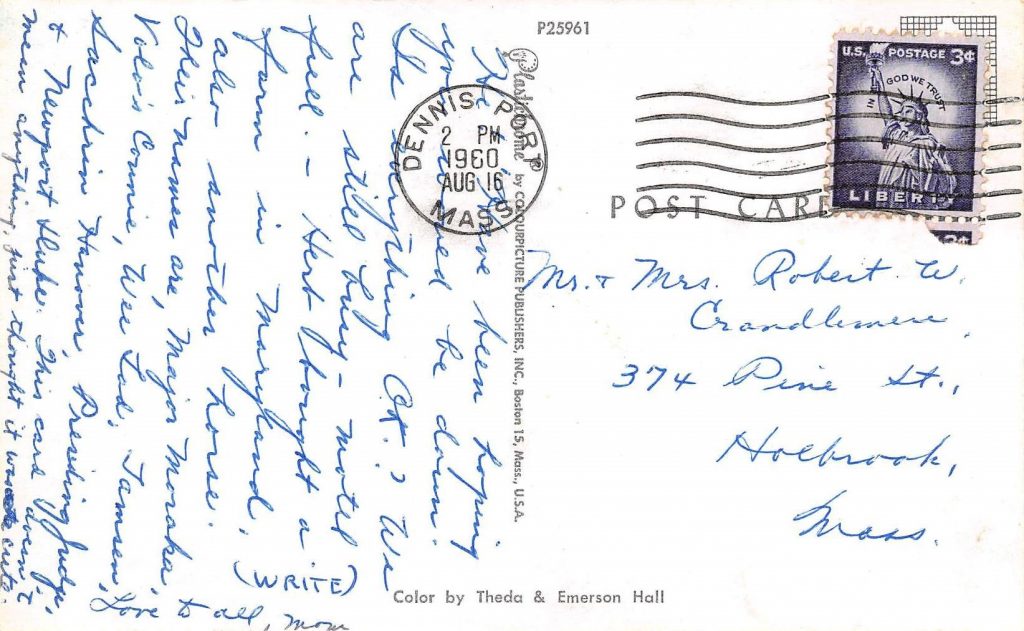 P25961
U.S. POSTAGE 3¢
IN GOD WE TRUST
LIBERTY
3¢
DENNIS PORT
2 PM
1960
AUG 16
MASS.
POST CARD
Plastichrome by COLOURPICTURE PUBLISHERS, INC., Boston 15, Mass., U.S.A.
Mr. & Mrs. Robert W.
Crandlemere
374 Pine St.,
Holbrook,
Mass.
Have been hoping
you could be down.
Is everything OK? We
are still busy - motel
full. - Herb bought a
farm in Maryland.
also another horse.
Their names are, Major Moraka,
Volo's Connie, Wee Lad, Tamsen,
Sacchrin Hanover, Presiding Judge,
& Newport This card doesn't
mean anything, just thought it was cute.
(WRITE)
Love to all, Mom
Color by Theda & Emerson Hall